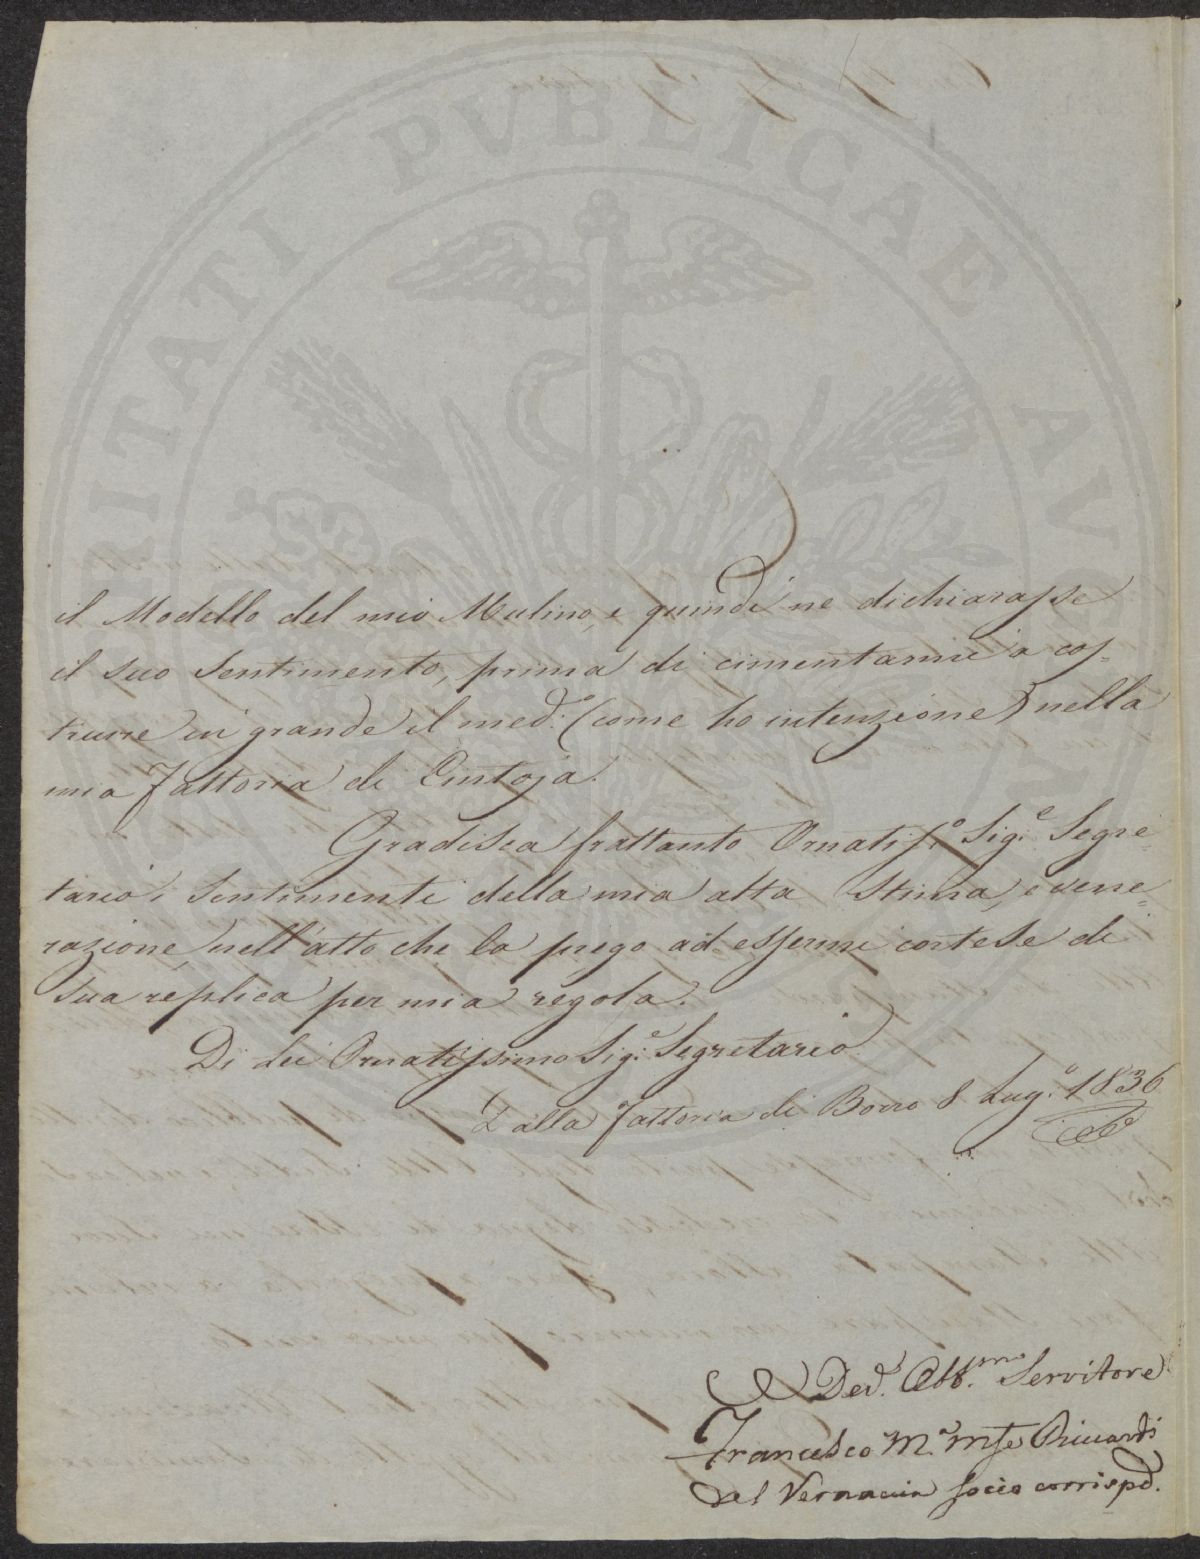 PROSPERITATI PVBLICAE AVGENDAE
il Modello del mio Mulino, e quindi ne dichiarasse
il suo Sentimento, prima di cimentarmi a cos-
truire in grande il med.º (come ho intenzione) nella
mia Fattoria di Cintoja.
Gradisca frattanto Ornatis.º Sig.e Segre=
tario i Sentimenti della mia alta Stima, e vene=
razione, nell'atto che la prego ad essermi cortese di
sua replica per mia regola.
Di Lei Ornatissimo Sig.e Segretario
Dalla Fattoria di Borro 8 Lug.º 1836
Dev.º Obb.mo Servitore
Francesco M.a Mse Riccardi
del Vernaccia Socio corrispd.